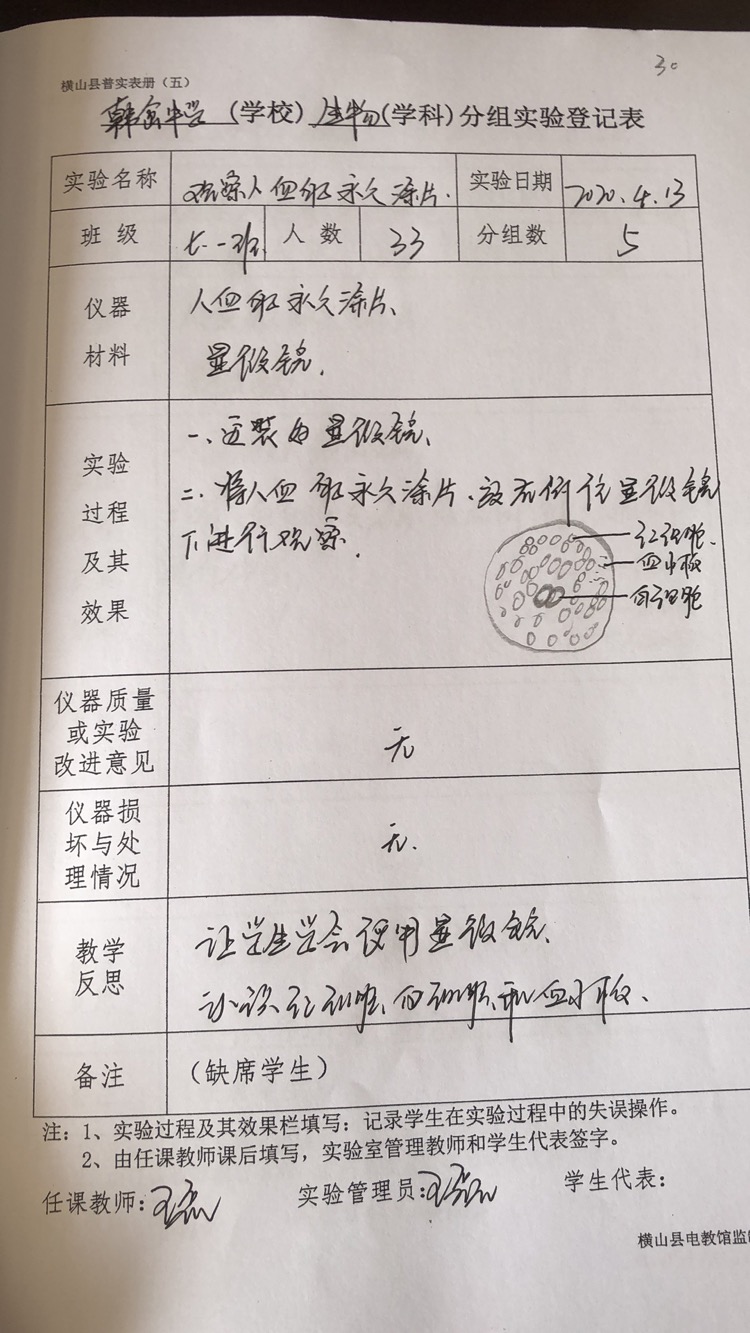 30
横山县普实表册（五）
韩岔中学（学校）生物（学科）分组实验登记表
实验名称 观察人血的永久涂片. 实验日期 2020.4.13
班 级 七.一班 人 数 33 分组数 5
仪器
材料
人血的永久涂片、
显微镜.
实验
过程
及其
效果
一、安装好显微镜、
二、将人血的永久涂片、放在低倍显微镜
下进行观察.
红细胞.
血小板
白细胞
仪器质量
或实验
改进意见
无
仪器损
坏与处
理情况
无.
教学
反思
让学生学会使用显微镜、
认识红细胞、白细胞、和血小板、
备注 （缺席学生）
注：1、实验过程及其效果栏填写：记录学生在实验过程中的失误操作。
2、由任课教师课后填写，实验室管理教师和学生代表签字。
任课教师： 实验管理员： 学生代表：
横山县电教馆监制